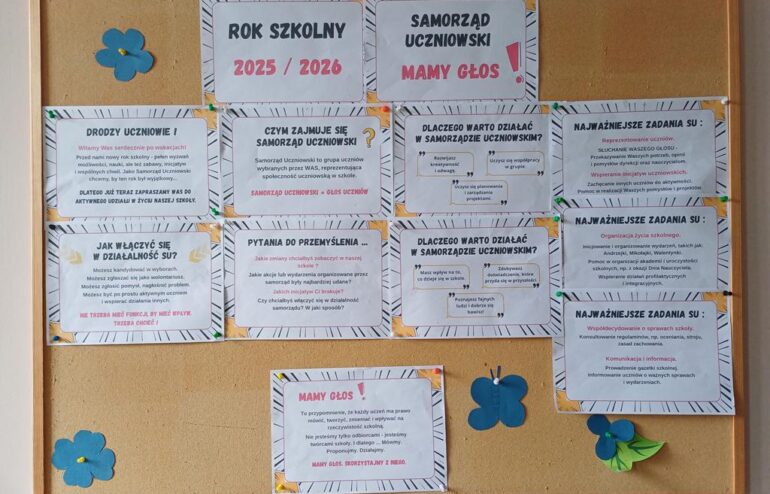 ROK SZKOLNY
2025 / 2026
SAMORZĄD
UCZNIOWSKI
MAMY GŁOS !
DRODZY UCZNIOWIE !
Witamy Was serdecznie po wakacjach!
Przed nami nowy rok szkolny - pełen wyzwań
możliwości, nauki, ale też zabawy, inicjatyw
i wspólnych chwil. Jako Samorząd Uczniowski
chcemy, by ten rok był wyjątkowy...
DLATEGO JUŻ TERAZ ZAPRASZAMY WAS DO
AKTYWNEGO UDZIAŁU W ŻYCIU NASZEJ SZKOŁY.
CZYM ZAJMUJE SIĘ
SAMORZĄD UCZNIOWSKI ?
Samorząd Uczniowski to grupa uczniów
wybranych przez WAS, reprezentująca
społeczność uczniowską w szkole.
SAMORZĄD UCZNIOWSKI = GŁOS UCZNIÓW
DLACZEGO WARTO DZIAŁAĆ
W SAMORZĄDZIE UCZNIOWSKIM?
Rozwijasz
kreatywność
i odwagę.
Uczysz się współpracy
w grupie.
Uczysz się planowania
i zarządzania
projektami.
NAJWAŻNIEJSZE ZADANIA SU :
Reprezentowanie uczniów.
SŁUCHANIE WASZEGO GŁOSU -
Przekazywanie Waszych potrzeb, opinii
i pomysłów dyrekcji oraz nauczycielom.
Wspieranie inicjatyw uczniowskich.
Zachęcanie innych uczniów do aktywności.
Pomoc w realizacji Waszych pomysłów i projektów.
JAK WŁĄCZYĆ SIĘ
W DZIAŁALNOŚĆ SU?
Możesz kandydować w wyborach.
Możesz zgłosić się jako wolontariusz.
Możesz zgłosić pomysł, nagłośnić problem.
Możesz być po prostu aktywnym uczniem
i wspierać działania innych.
NIE TRZEBA MIEĆ FUNKCJI, BY MIEĆ WPŁYW.
TRZEBA CHCIEĆ !
PYTANIA DO PRZEMYŚLENIA ...
Jakie zmiany chciałbyś zobaczyć w naszej
szkole ?
Jakie akcje lub wydarzenia organizowane przez
samorząd były najbardziej udane?
Jakich inicjatyw Ci brakuje?
Czy chciałbyś włączyć się w działalność
samorządu? W jaki sposób?
DLACZEGO WARTO DZIAŁAĆ
W SAMORZĄDZIE UCZNIOWSKIM?
Masz wpływ na to,
co dzieje się w szkole.
Zdobywasz
doświadczenie, które
przyda się w przyszłości.
Poznajesz fajnych
ludzi i dobrze się
bawisz!
NAJWAŻNIEJSZE ZADANIA SU :
Organizacja życia szkolnego.
Inicjowanie i organizowanie wydarzeń, takich jak:
Andrzejki, Mikołajki, Walentynki.
Pomoc w organizacji akademii i uroczystości
szkolnych, np. z okazji Dnia Nauczyciela.
Wspieranie działań profilaktycznych
i integracyjnych.
NAJWAŻNIEJSZE ZADANIA SU :
Współdecydowanie o sprawach szkoły.
Konsultowanie regulaminów, np. oceniania, stroju,
zasad zachowania.
Komunikacja i informacja.
Prowadzenie gazetki szkolnej.
Informowanie uczniów o ważnych sprawach
i wydarzeniach.
MAMY GŁOS !
To przypomnienie, że każdy uczeń ma prawo
mówić, tworzyć, zmieniać i wpływać na
rzeczywistość szkolną.
Nie jesteśmy tylko odbiorcami - jesteśmy
twórcami szkoły. I dlatego ... Mówmy.
Proponujmy. Działajmy.
MAMY GŁOS. SKORZYSTAJMY Z NIEGO.